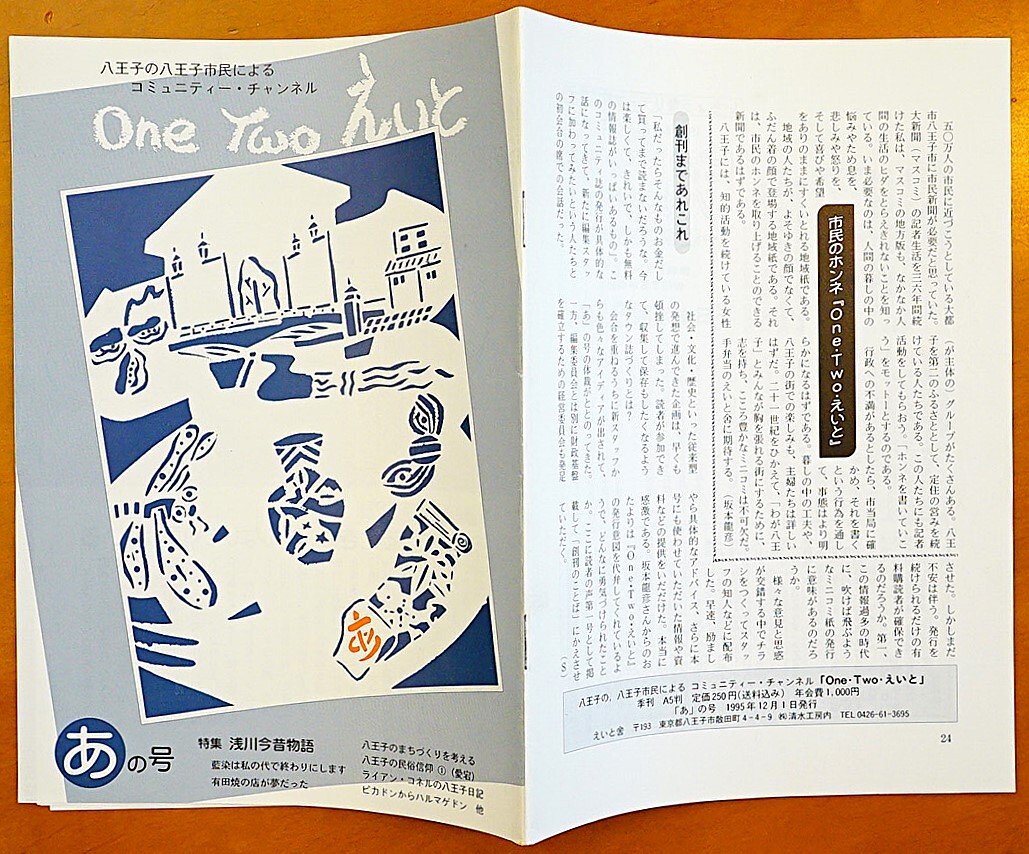 八王子の八王子市民による
コミュニティー・チャンネル
One Two えいと
あの号
特集 浅川今昔物語
藍染は私の代で終わりにします
有田焼の店が夢だった
八王子のまちづくりを考える
八王子の民俗信仰①(愛宕)
ライアン・コネルの八王子日記
ピカドンからハルマゲドン 他
五〇万人の市民に近づこうとしている大都
市八王子市に市民新聞が必要だと思っていた。
大新聞(マスコミ)の記者生活を三六年間続
けた私は、マスコミの地方版も、なかなか人
間の生活のヒダをとらえきれないことを知っ
ている。いま必要なのは、人間の暮しの中の
悩みやため息を、
悲しみや怒りを、
そして喜びや希望
をありのままにすくいとれる地域紙である。
地域の人たちが、よそゆきの顔でなくて、
ふだん着の顔で登場する地域紙である。それ
は、市民のホンネを取り上げることのできる
新聞であるはずである。
八王子には、知的活動を続けている女性
市民のホンネ『One・Two・えいと』
(が主体の)グループがたくさんある。八王
子を第二のふるさととして、定住の営みを続
けている人たちである。この人たちにも記者
活動をしてもらおう。「ホンネを書いていこ
う」をモットーとするのである。
行政への不満があるとしたら、市当局に確
かめ、それを書く
という行為を通し
て、事態はより明
らかになるはずである。暮しの中の工夫や、
八王子の街での楽しみも、主婦たちは詳しい
はずだ。二十一世紀をひかえて、「わが八王
子」とみんなが胸を張れる街にするために、
志を持ち、こころ豊かなミニコミは不可欠だ。
手弁当のえいと舎に期待する。(坂本龍彦)
創刊まであれこれ
「私だったらそんなものお金だし
て買ってまで読まないだろうな。今
は楽しくて、きれいで、しかも無料
の情報誌がいっぱいあるもの」。こ
のコミュニティ誌の発行が具体的な
話になってきて、新たに編集スタッ
フに加わってみたいという人たちと
の初会合の席での会話だった。
社会・文化・歴史といった従来型
の発想で進んできた企画は、早くも
頓挫してしまった。読者が参加でき
て、収集して保存もしたくなるよう
なタウン誌づくりとは?
会合を重ねるうちに新スタッフか
らも色々なアイディアが出されて、
「あ」の号の体裁がととのってきた。
一方、編集委員会とは別に財政基盤
を確立するための経営委員会も発足
させた。しかしまだ
不安は伴う。発行を
続けられるだけの有
料購読者が確保でき
るのだろうか。第一、
この情報過多の時代
に、吹けば飛ぶよう
なミニコミ紙の発行
に意味があるのだろ
うか。
様々な意見と思惑
が交錯する中でチラ
シをつくってスタッ
フの知人などに配布
した。早速、励まし
やら具体的なアドバイス、さらに本
号にも使わせていただいた情報や資
料などの提供をいただけた。本当に
感激である。坂本龍彦さんからのお
たよりは『One・Two・えいと』
の発行意図を代弁してくれているよ
うで、どんなに勇気づけられたこと
か。ここに読者の声第一号として掲
載して「創刊のことば」にかえさせ
ていただく。 (S)
八王子の、八王子市民による コミュニティー・チャンネル「One・Two・えいと」
季刊 A5判 定価250円(送料込み) 年会費1,000円
「あ」の号 1995年12月1日発行
えいと舎 〒193 東京都八王子市散田町4-4-9 ㈱清水工房内 TEL 0426-61-3695
24